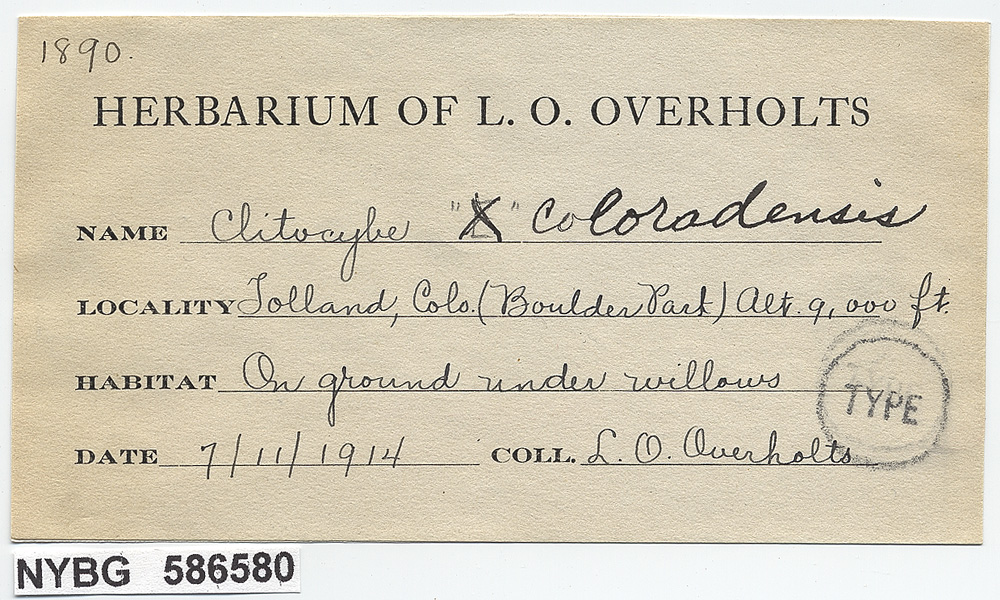 1890.
HERBARIUM OF L. O. OVERHOLTS
NAME Clitocybe "X" Coloradensis
LOCALITY Tolland, Colo. (Boulder Park) Alt. 9,000 ft.
HABITAT On ground under willows
TYPE
DATE 7/11/1914 COLL. L. O. Overholts
NYBG 586580